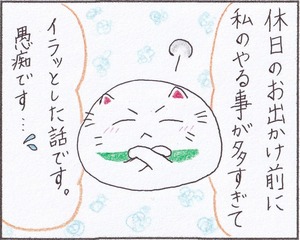 休日のお出かけ前に
私のやる事が多すぎて
イラッとした話です。
愚痴です…